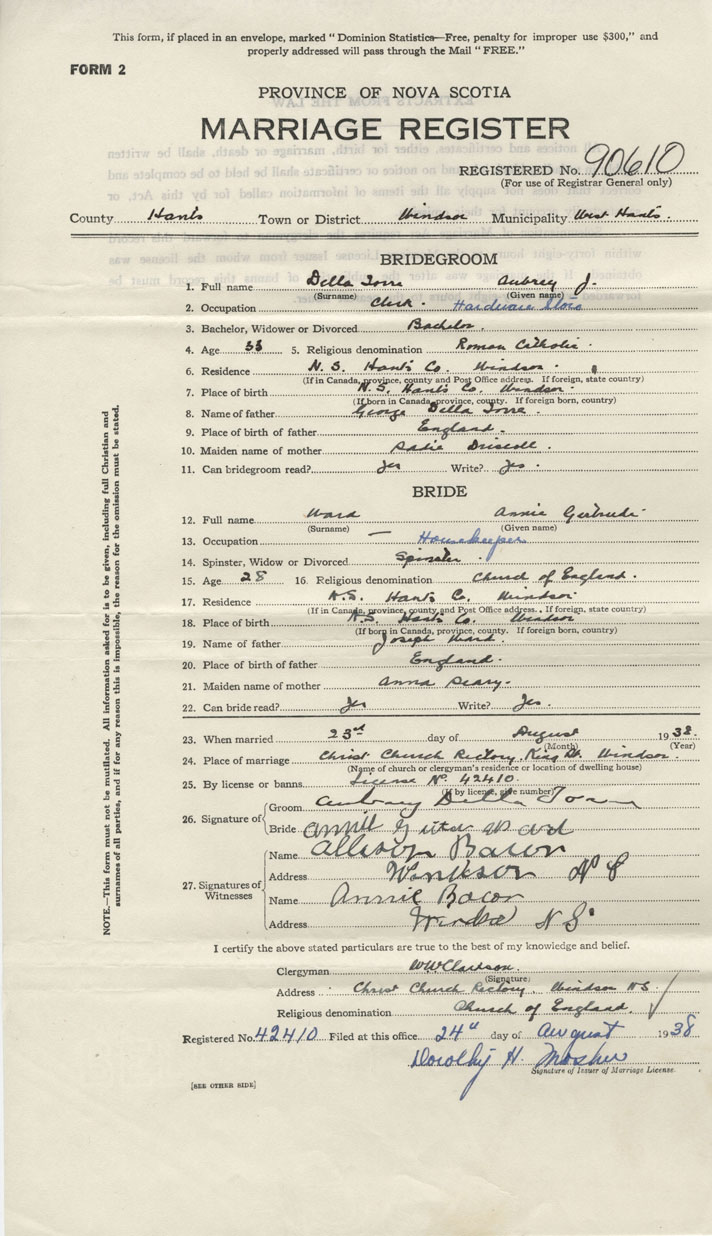 This form, if placed in an envelope, marked "Dominion Statistics—Free, penalty for improper use $300," and
properly addressed will pass through the Mail "FREE."
FORM 2
PROVINCE OF NOVA SCOTIA
MARRIAGE REGISTER
REGISTERED No. 90610
(For use of Registrar General only)
County Hants Town or District Windsor Municipality West Hants.
BRIDEGROOM
1. Full name Della Torre Aubrey J.
(Surname) (Given name)
2. Occupation Clerk. Hardware Store
3. Bachelor, Widower or Divorced Bachelor.
4. Age 33 5. Religious denomination Roman Catholic.
6. Residence N. S. Hants Co. Windsor.
(If in Canada, province, county and Post Office address. If foreign, state country)
7. Place of birth N. S. Hants Co. Windsor.
(If born in Canada, province, county. If foreign born, country)
8. Name of father George Della Torre.
9. Place of birth of father England.
10. Maiden name of mother Sadie Driscoll.
11. Can bridegroom read? Yes Write? Yes.
BRIDE
12. Full name Ward Annie Gertrude
(Surname) (Given name)
13. Occupation — Housekeeper
14. Spinster, Widow or Divorced Spinster.
15. Age 28 16. Religious denomination Church of England.
17. Residence N.S. Hants Co. Windsor
(If in Canada, province, county and Post Office address. If foreign, state country)
18. Place of birth N.S. Hants Co. Windsor
(If born in Canada, province, county. If foreign born, country)
19. Name of father Joseph Ward.
20. Place of birth of father England.
21. Maiden name of mother Anna
22. Can bride read? Yes Write? Yes.
23. When married 23rd day of August 1938.
(Month) (Year)
24. Place of marriage Christ Church Rectory, King St. Windsor.
(Name of church or clergyman's residence or location of dwelling house)
25. By license or banns License No. 42410.
(If by license, give number)
26. Signature of
Groom Aubrey Della Torre
Bride Annie Ward
27. Signatures of Witnesses
Name Allison Bacon
Address Windsor N S
Name Annie Bacon
Address Windsor N S.
I certify the above stated particulars are true to the best of my knowledge and belief.
Clergyman W W Clarkson.
(Signature)
Address Christ Church Rectory, Windsor N S.
Religious denomination Church of England.
Registered No. 42410 Filed at this office 24th day of August 1938
Dorothy H. Mosher
Signature of Issuer of Marriage License.
[SEE OTHER SIDE]
NOTE.—This form must not be mutilated. All information asked for is to be given, including full Christian and
surnames of all parties, and if for any reason this is impossible, the reason for the omission must be stated.